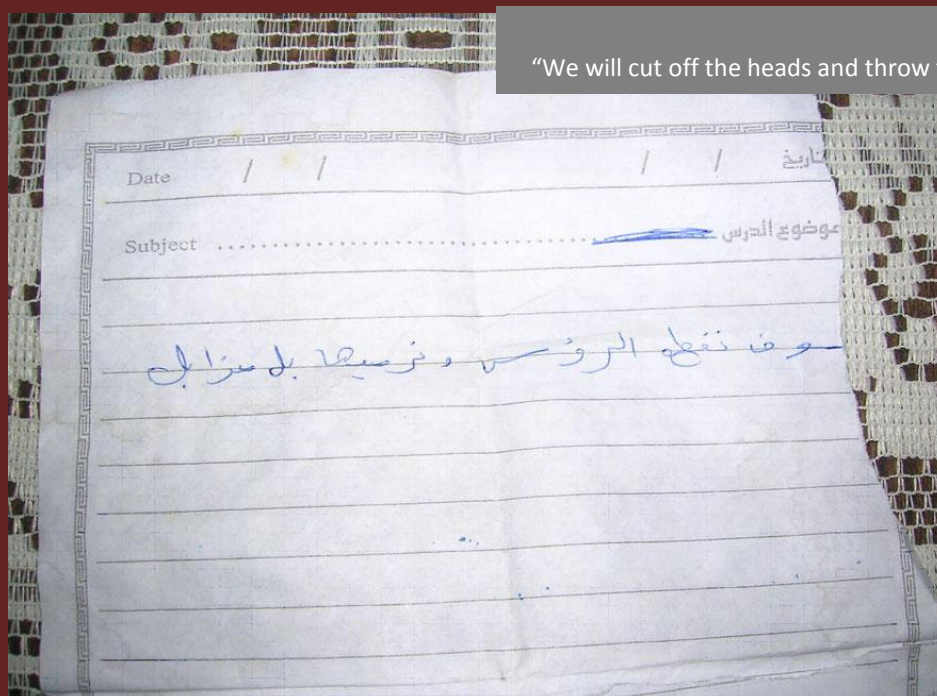 “We will cut off the heads and throw
Date / / / / تاريخ
Subject موضوع الدرس
سوف نقطع الرؤس و نرميها بل مزابل